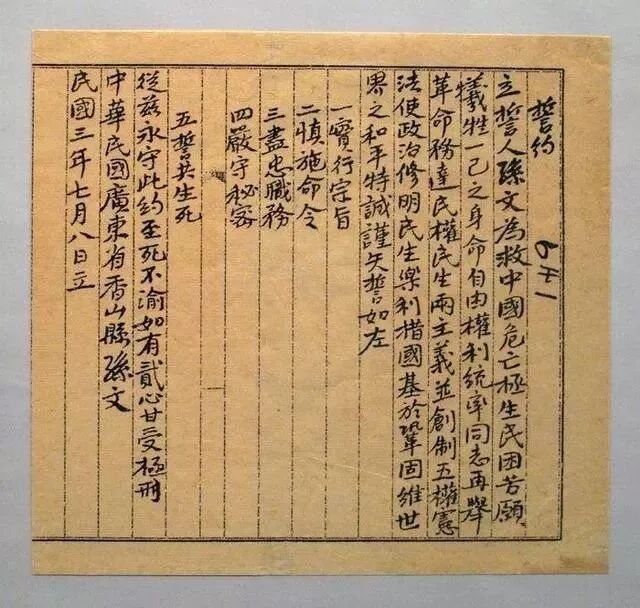 誓約
立誓人孫文為救中國危亡極生民困苦願
犧牲一己之身命自由權利統率同志再舉
革命務達民權民生兩主義並創制五權憲
法使政治修明民生樂利措國基於鞏固維世
界之和平特誠謹矢誓如左
一實行宗旨
二慎施命令
三盡忠職務
四嚴守秘密
五誓共生死
從茲永守此約至死不渝如有貳心甘受極刑
中華民國廣東省香山縣孫文
民國三年七月八日立